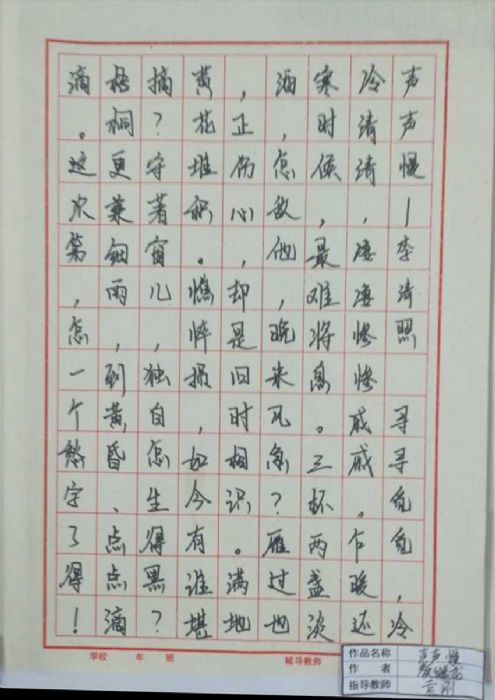 声声慢—李清照 寻寻觅觅,冷
冷清清,凄凄惨惨戚戚。乍暖还
寒时候,最难将息。三杯两盏淡
酒,怎敌他,晚来风急?雁过也
,正伤心,却是旧时相识。满地
黄花堆积。憔悴损,如今有谁堪
摘?守著窗儿,独自怎生得黑?
梧桐更兼细雨,到黄昏、点点滴
滴。这次第,怎一个愁字了得!
学校 年 班 辅导教师
作品名称 声声慢
作者
指导教师